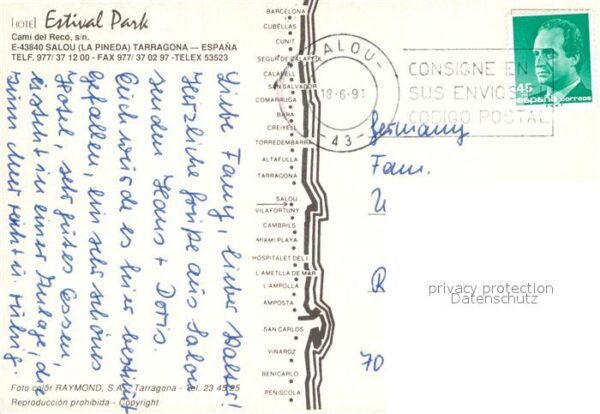 HOTEL Estival Park
Camí del Recó, s/n.
E-43840 SALOU (LA PINEDA) TARRAGONA — ESPAÑA
TELF. 977/ 37 12 00 - FAX 977/ 37 02 97 -TELEX 53523
Liebe Fanny, lieber Walter!
Herzliche Grüße aus Salou
senden Hans + Doris.
Euch würde es hier bestimmt
gefallen, ein sehr schönes
Hotel, sehr gutes Essen,
es steht in einer Anlage, die
ruhig.
Foto color RAYMOND, S.A. Tarragona - Tel. 23 45 25
Reproducción prohibida - Copyright
BARCELONA
CUBELLAS
CUNIT
SEGUR DE CALAFELL
CALAFELL
SAN SALVADOR
COMARRUGA
BARA
CREIXELL
TORREDEMBARRA
ALTAFULLA
TARRAGONA
SALOU
VILAFORTUNY
CAMBRILS
MIAMI-PLAYA
HOSPITALET DEL I.
L'AMETLLA DE MAR
L'AMPOLLA
AMPOSTA
SAN CARLOS
VINAROZ
BENICARLO
PEÑISCOLA
SALOU
18-6-91
-43-
CONSIGNE EN
SUS ENVIOS EL
CODIGO POSTAL
45
España correos
Germany
Fam.
R
70
privacy protection
Datenschutz